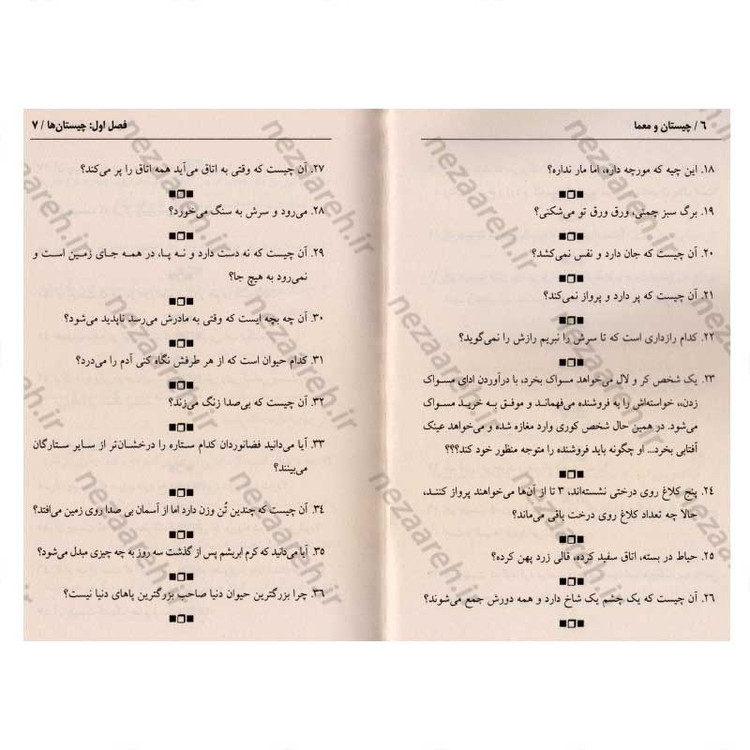 ۶ / چیستان و معما
۱۸. این چیه که مورچه داره، اما مار نداره؟
۱۹. برگ سبز چمنی، ورق ورق تو می‌شکنی؟
۲۰. آن چیست که جان دارد و نفس نمی‌کشد؟
۲۱. آن چیست که پر دارد و پرواز نمی‌کند؟
۲۲. کدام رازداری است که تا سرش را نبریم رازش را نمی‌گوید؟
۲۳. یک شخص کر و لال می‌خواهد مسواک بخرد، با درآوردن ادای مسواک
زدن، خواسته‌اش را به فروشنده می‌فهماند و موفق به خرید مسواک
می‌شود. در همین حال شخص کوری وارد مغازه شده و می‌خواهد عینک
آفتابی بخرد... او چگونه باید فروشنده را متوجه منظور خود کند؟؟؟
۲۴. پنج کلاغ روی درختی نشسته‌اند، ۳ تا از آن‌ها می‌خواهند پرواز کنند،
حالا چه تعداد کلاغ روی درخت باقی می‌ماند؟
۲۵. حیاط در بسته، اتاق سفید کرده، قالی زرد پهن کرده؟
۲۶. آن چیست که یک چشم یک شاخ دارد و همه دورش جمع می‌شوند؟
فصل اول: چیستان‌ها / ۷
۲۷. آن چیست که وقتی به اتاق می‌آید همه اتاق را پر می‌کند؟
۲۸. می‌رود و سرش به سنگ می‌خورد؟
۲۹. آن چیست که نه دست دارد و نه پا، در همه جای زمین است و
نمی‌رود به هیچ جا؟
۳۰. آن چه بچه ایست که وقتی به مادرش می‌رسد ناپدید می‌شود؟
۳۱. کدام حیوان است که از هر طرفش نگاه کنی آدم را می‌درد؟
۳۲. آن چیست که بی‌صدا زنگ می‌زند؟
۳۳. آیا می‌دانید فضانوردان کدام ستاره را درخشان‌تر از سایر ستارگان
می‌بینند؟
۳۴. آن چیست که چندین تُن وزن دارد اما از آسمان بی صدا روی زمین می‌افتد؟
۳۵. آیا می‌دانید که کرم ابریشم پس از گذشت سه روز به چه چیزی مبدل می‌شود؟
۳۶. چرا بزرگترین حیوان دنیا صاحب بزرگترین پاهای دنیا نیست؟
nezaareh.ir
nezaareh.ir
nezaareh.ir
nezaareh.ir
nezaareh.ir
nezaareh.ir